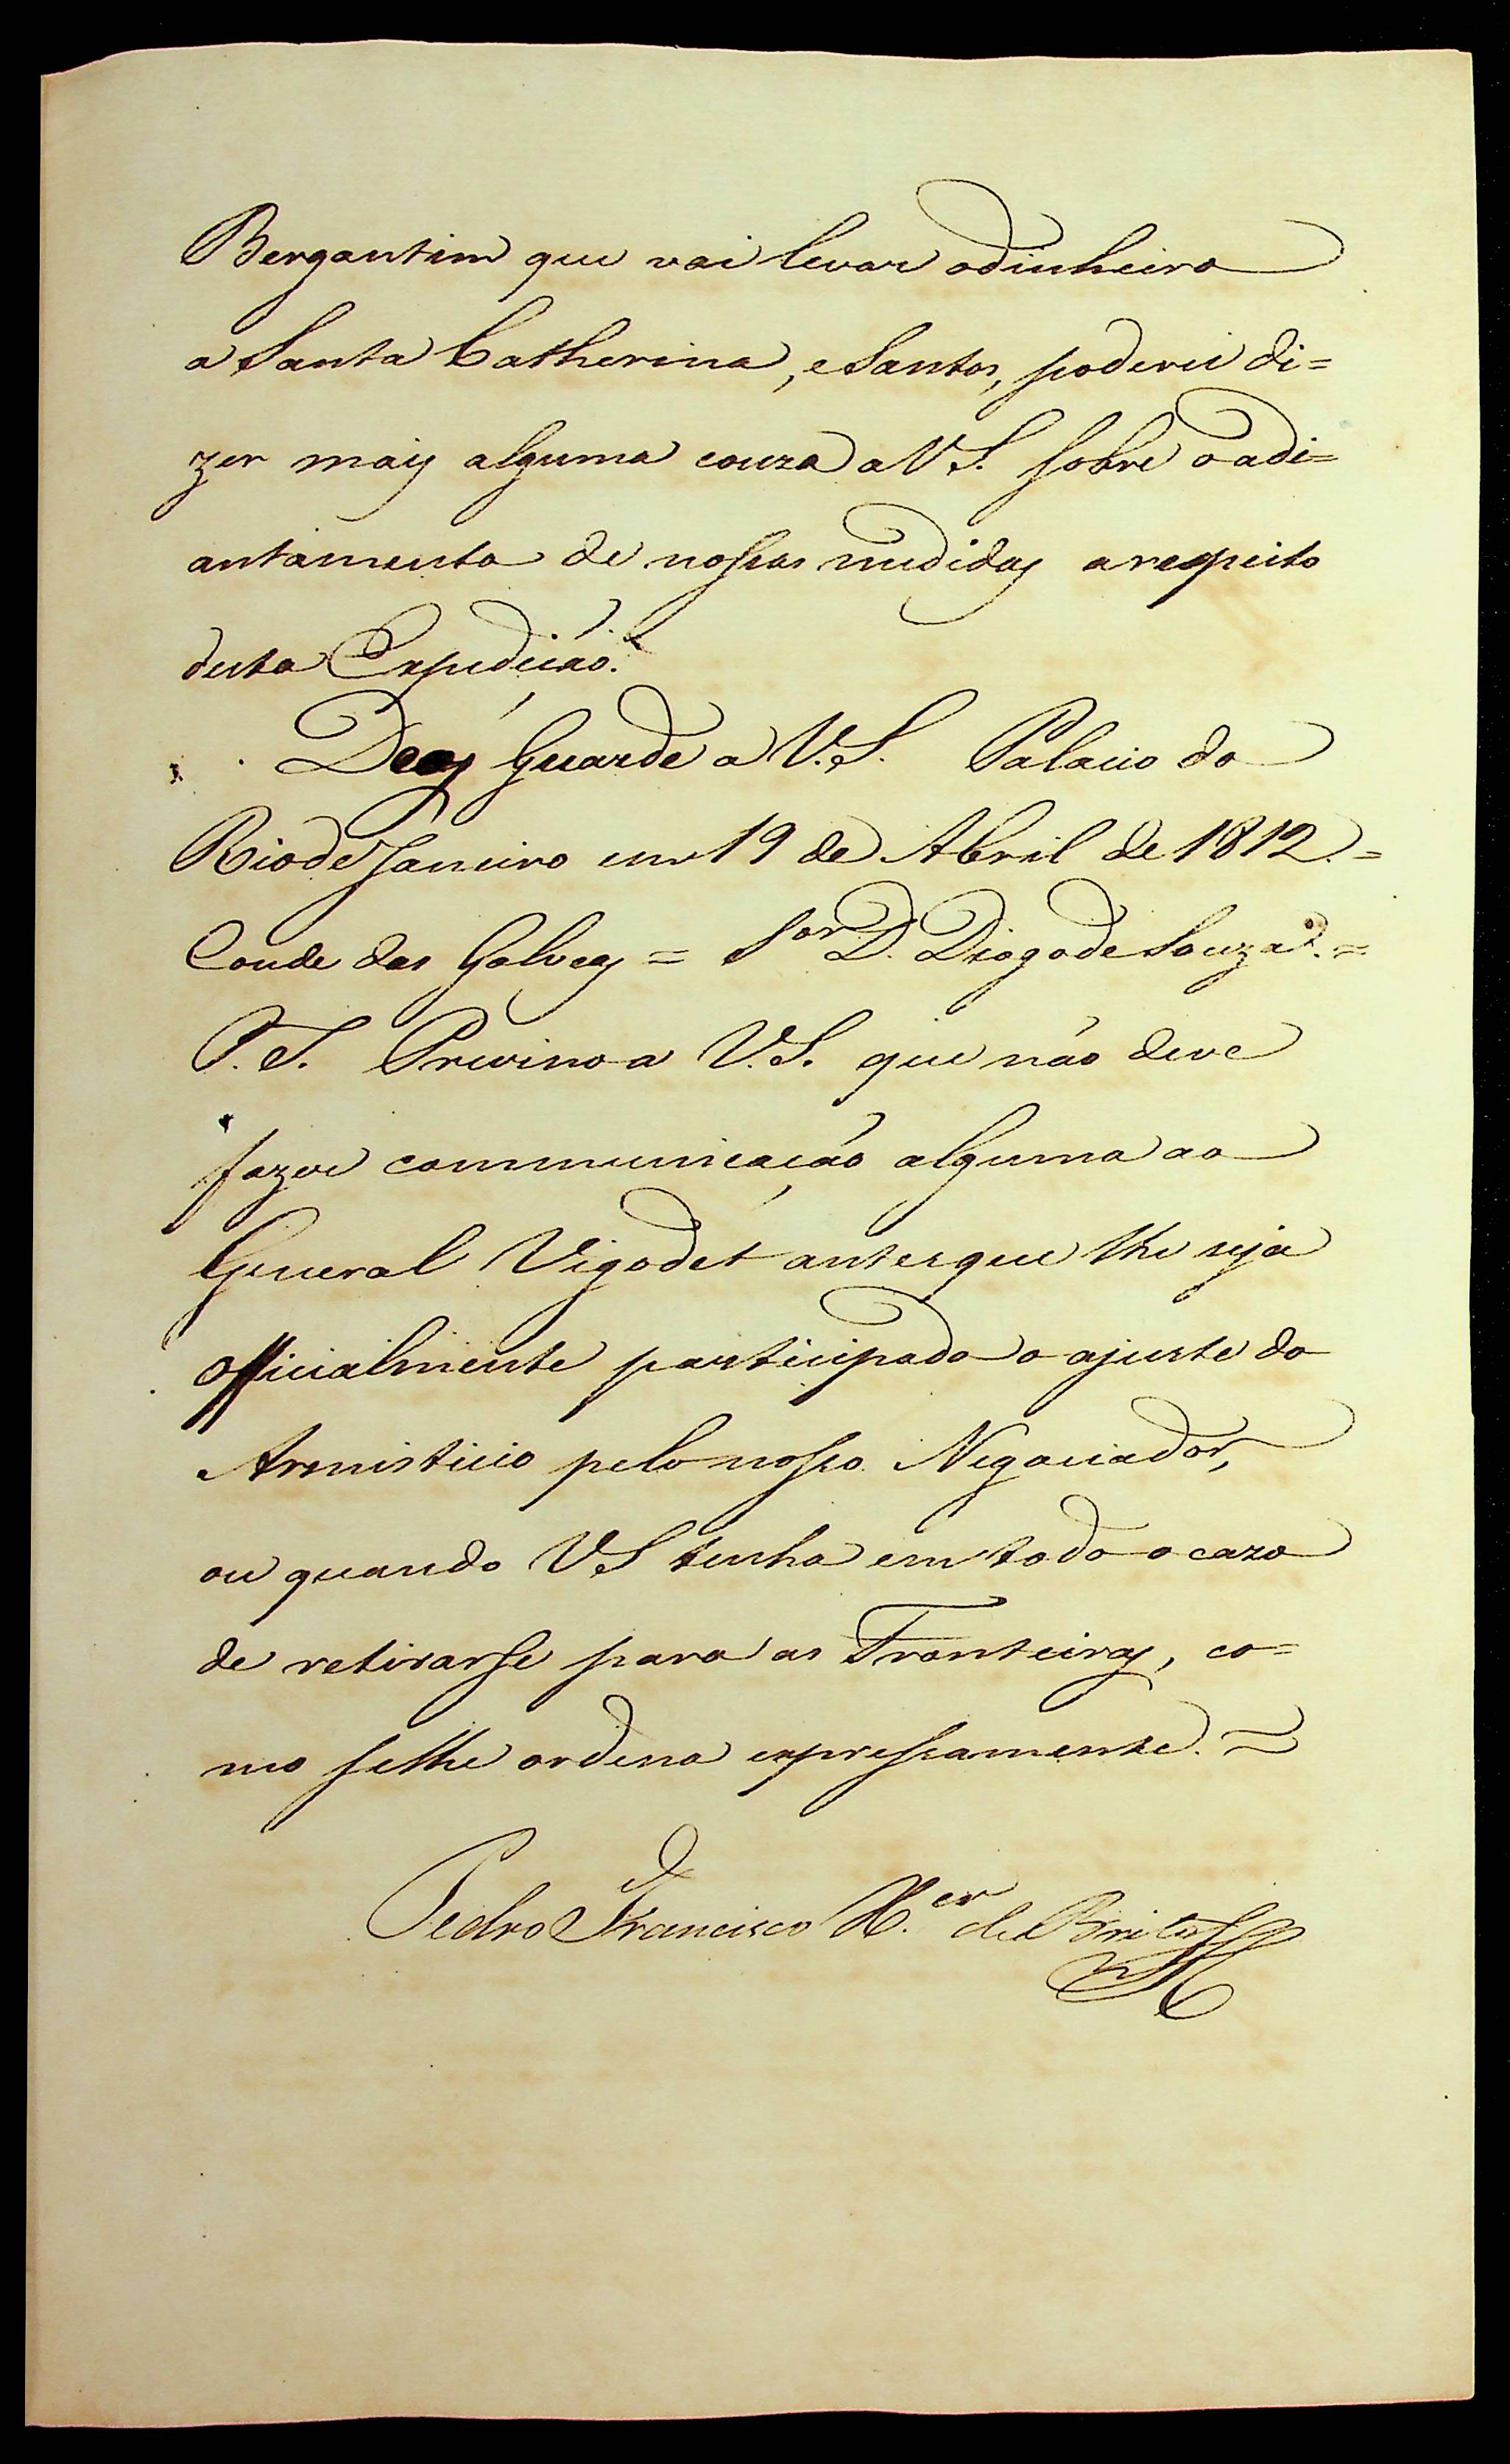 Bergantim que vai levar odinheiro
a Santa Catherina, e Santos, poderei di=
zer mais alguma couza a VS. sobre o adi=
antamento de nossas medidas a respeito
desta Expedição.
Deos Guarde a V.S. Palacio do
Rio de Janeiro em 19 de Abril de 1812.=
Conde das Galveas = Sor D. Diogo de Souza.=
P.S. Previno a V.S. que não deve
fazer communicação alguma ao
General Vigodet antes que lhe seja
officialmente participado o ajuste do
Armisticio pelo nosso Negociador,
ou quando VS tenha em todo o cazo
de retirarse para as Fronteiras, co=
mo selhe ordena expressamente.
Pedro Francisco X.er de Brito